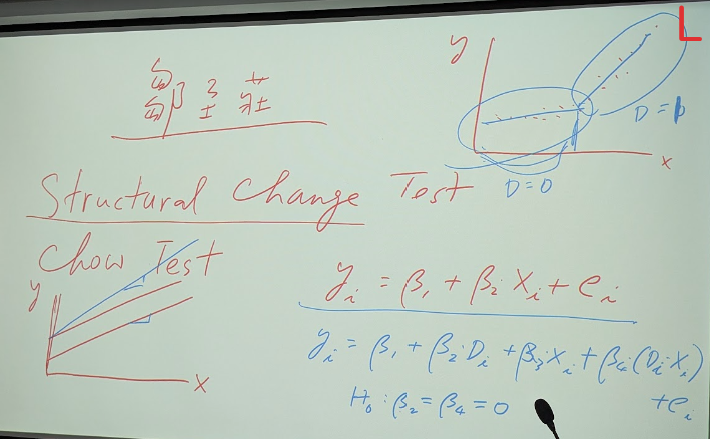 鄒至莊
y
D=1
x
D=0
Structural Change Test
Chow Test
y
x
yᵢ = β₁ + β₂ Xᵢ + eᵢ
yᵢ = β₁ + β₂Dᵢ + β₃Xᵢ + β₄(DᵢXᵢ)
+eᵢ
H₀ : β₂ = β₄ = 0